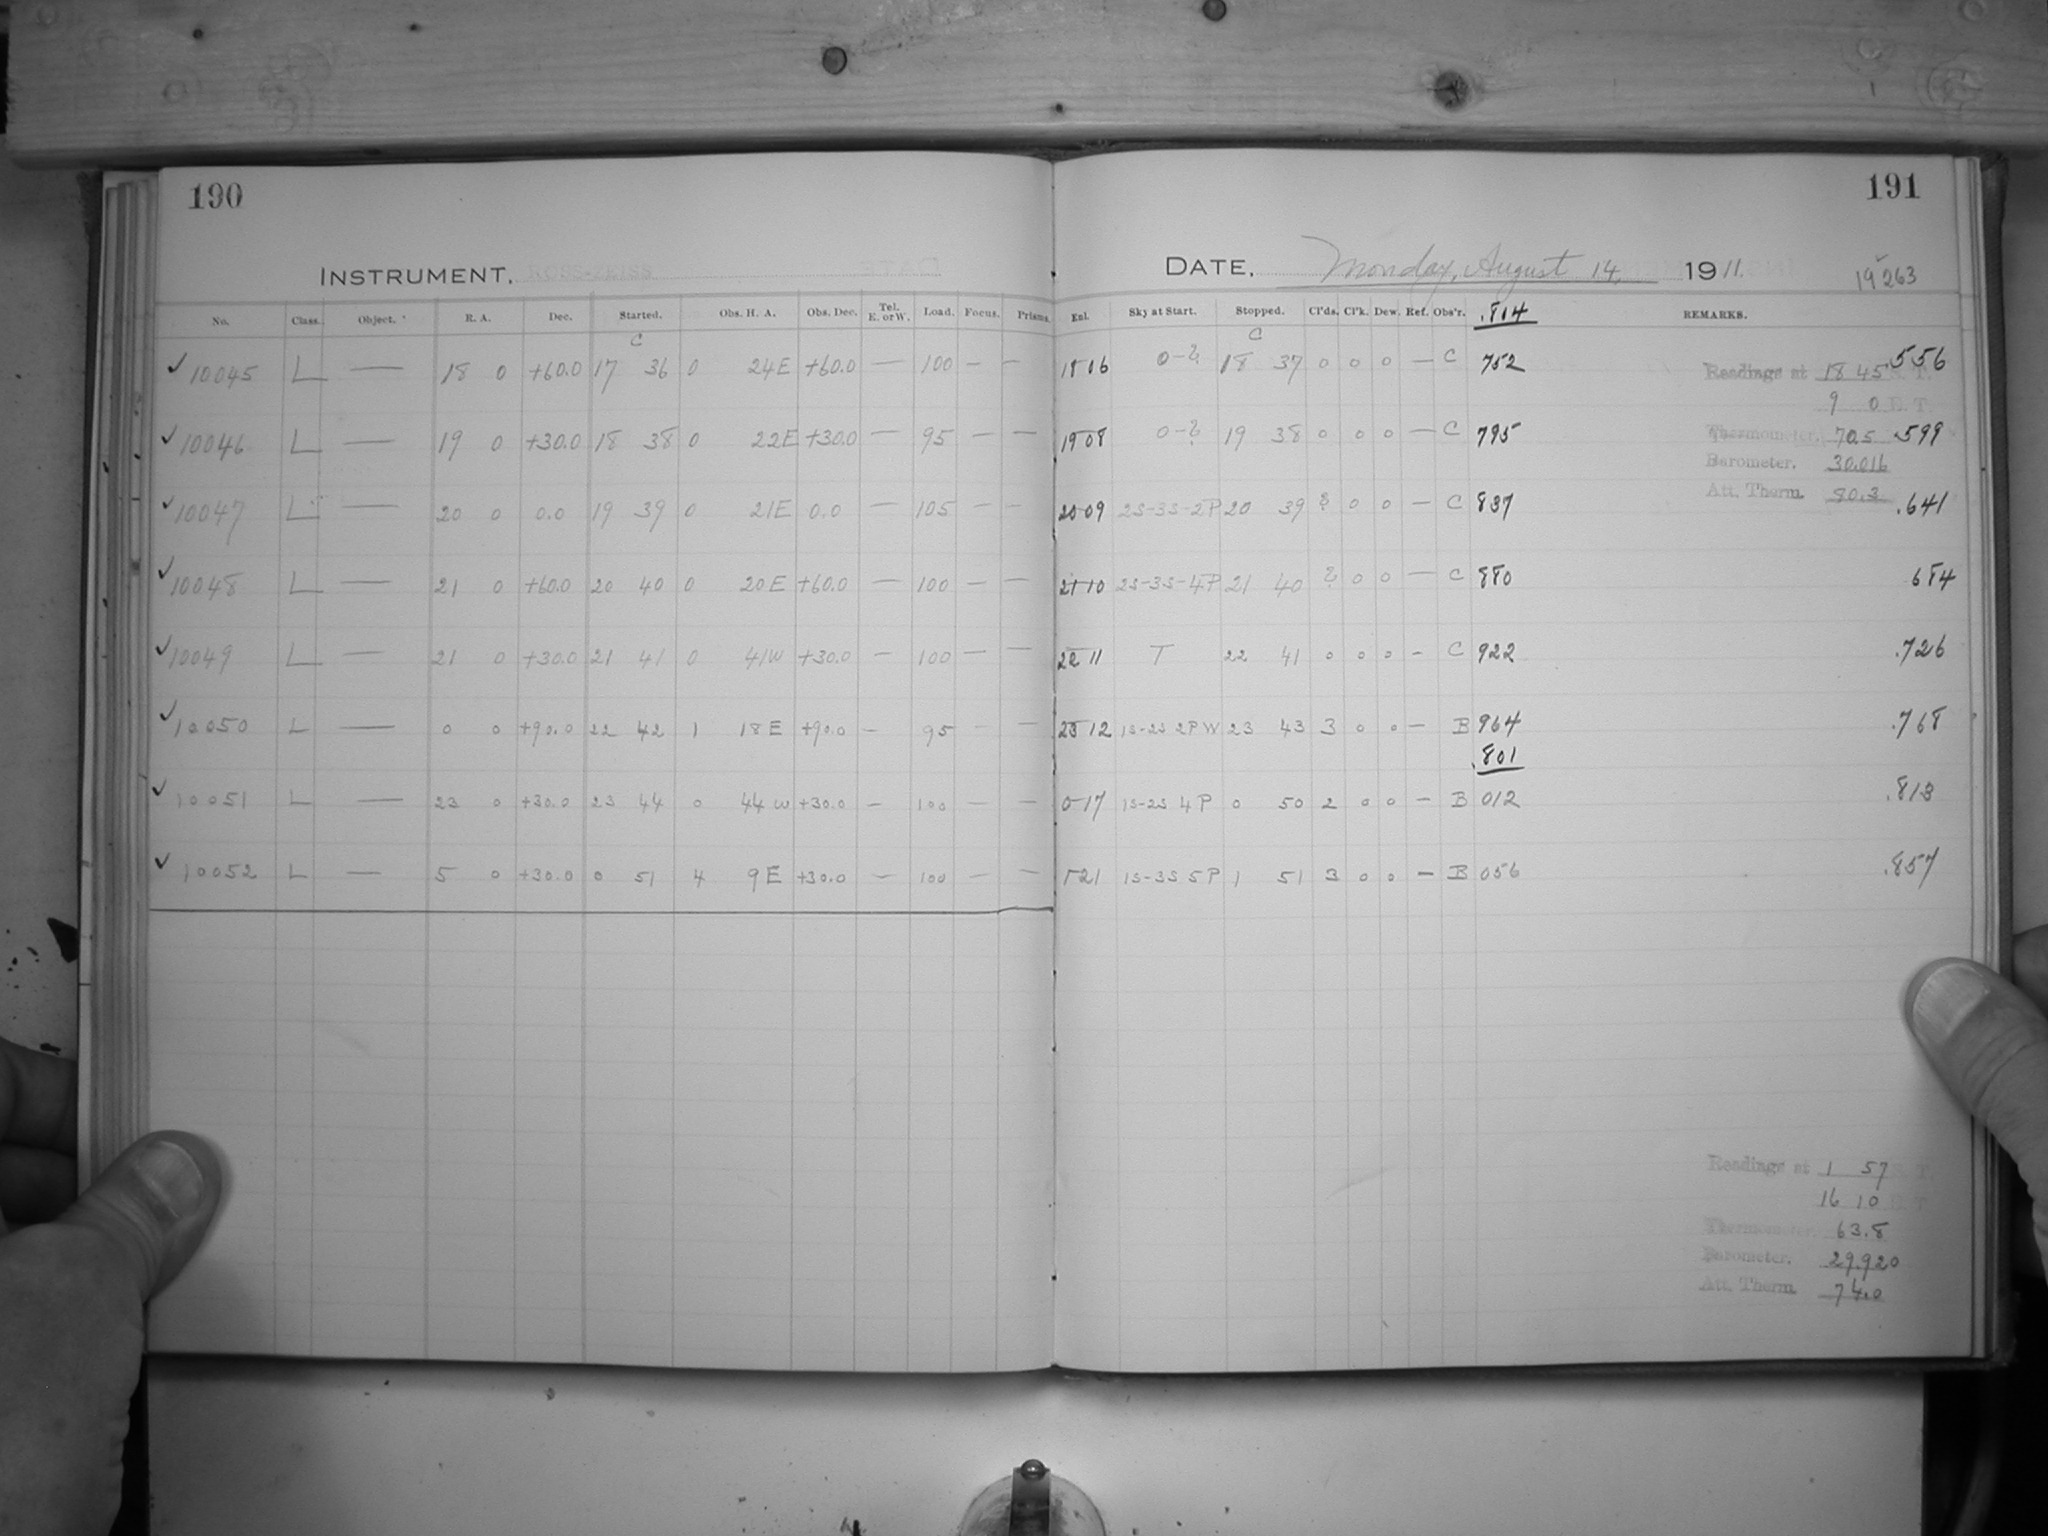 190
191
INSTRUMENT. ROSS-ZEISS
DATE. Monday, August 14, 1911.
19263
No. Class. Object. R. A. Dec. Started. Obs. H. A. Obs. Dec. Tel. E. or W. Load. Focus. Prisms. Exl. Sky at Start. Stopped. Cl'ds. Cl'k. Dew. Ref. Obs'r. .814 REMARKS.
C C
✓ 10045 L — 18 0 +60.0 17 36 0 24E +60.0 — 100 — — 18 06 0-2 18 37 0 0 0 — C 752 .556
Readings at 18 45 S. T.
9 0 E. T.
✓ 10046 L — 19 0 +30.0 18 38 0 22E +30.0 — 95 — — 19 08 0-2 19 38 0 0 0 — C 795 .599
Thermometer. 70.5
Barometer. 30.016
Att. Therm. 80.3
✓ 10047 L — 20 0 0.0 19 39 0 21E 0.0 — 105 — — 20 09 2S-3S-2P 20 39 2 0 0 — C 837 .641
✓ 10048 L — 21 0 +60.0 20 40 0 20E +60.0 — 100 — — 21 10 2S-3S-4P 21 40 2 0 0 — C 880 684
✓ 10049 L — 21 0 +30.0 21 41 0 41W +30.0 — 100 — — 22 11 T 22 41 0 0 0 - C 922 .726
✓ 10050 L — 0 0 +90.0 22 42 1 18E +90.0 — 95 — — 23 12 1S-2S 2PW 23 43 3 0 0 — B 964 .768
.801
✓ 10051 L — 23 0 +30.0 23 44 0 44W +30.0 — 100 — — 0 17 1S-2S 4P 0 50 2 0 0 — B 012 .813
✓ 10052 L — 5 0 +30.0 0 51 4 9E +30.0 — 100 — — 1 21 1S-3S 5P 1 51 3 0 0 — B 056 .857
Readings at 1 57 S. T.
16 10 E. T.
Thermometer. 63.8
Barometer. 29.920
Att. Therm. 74.0